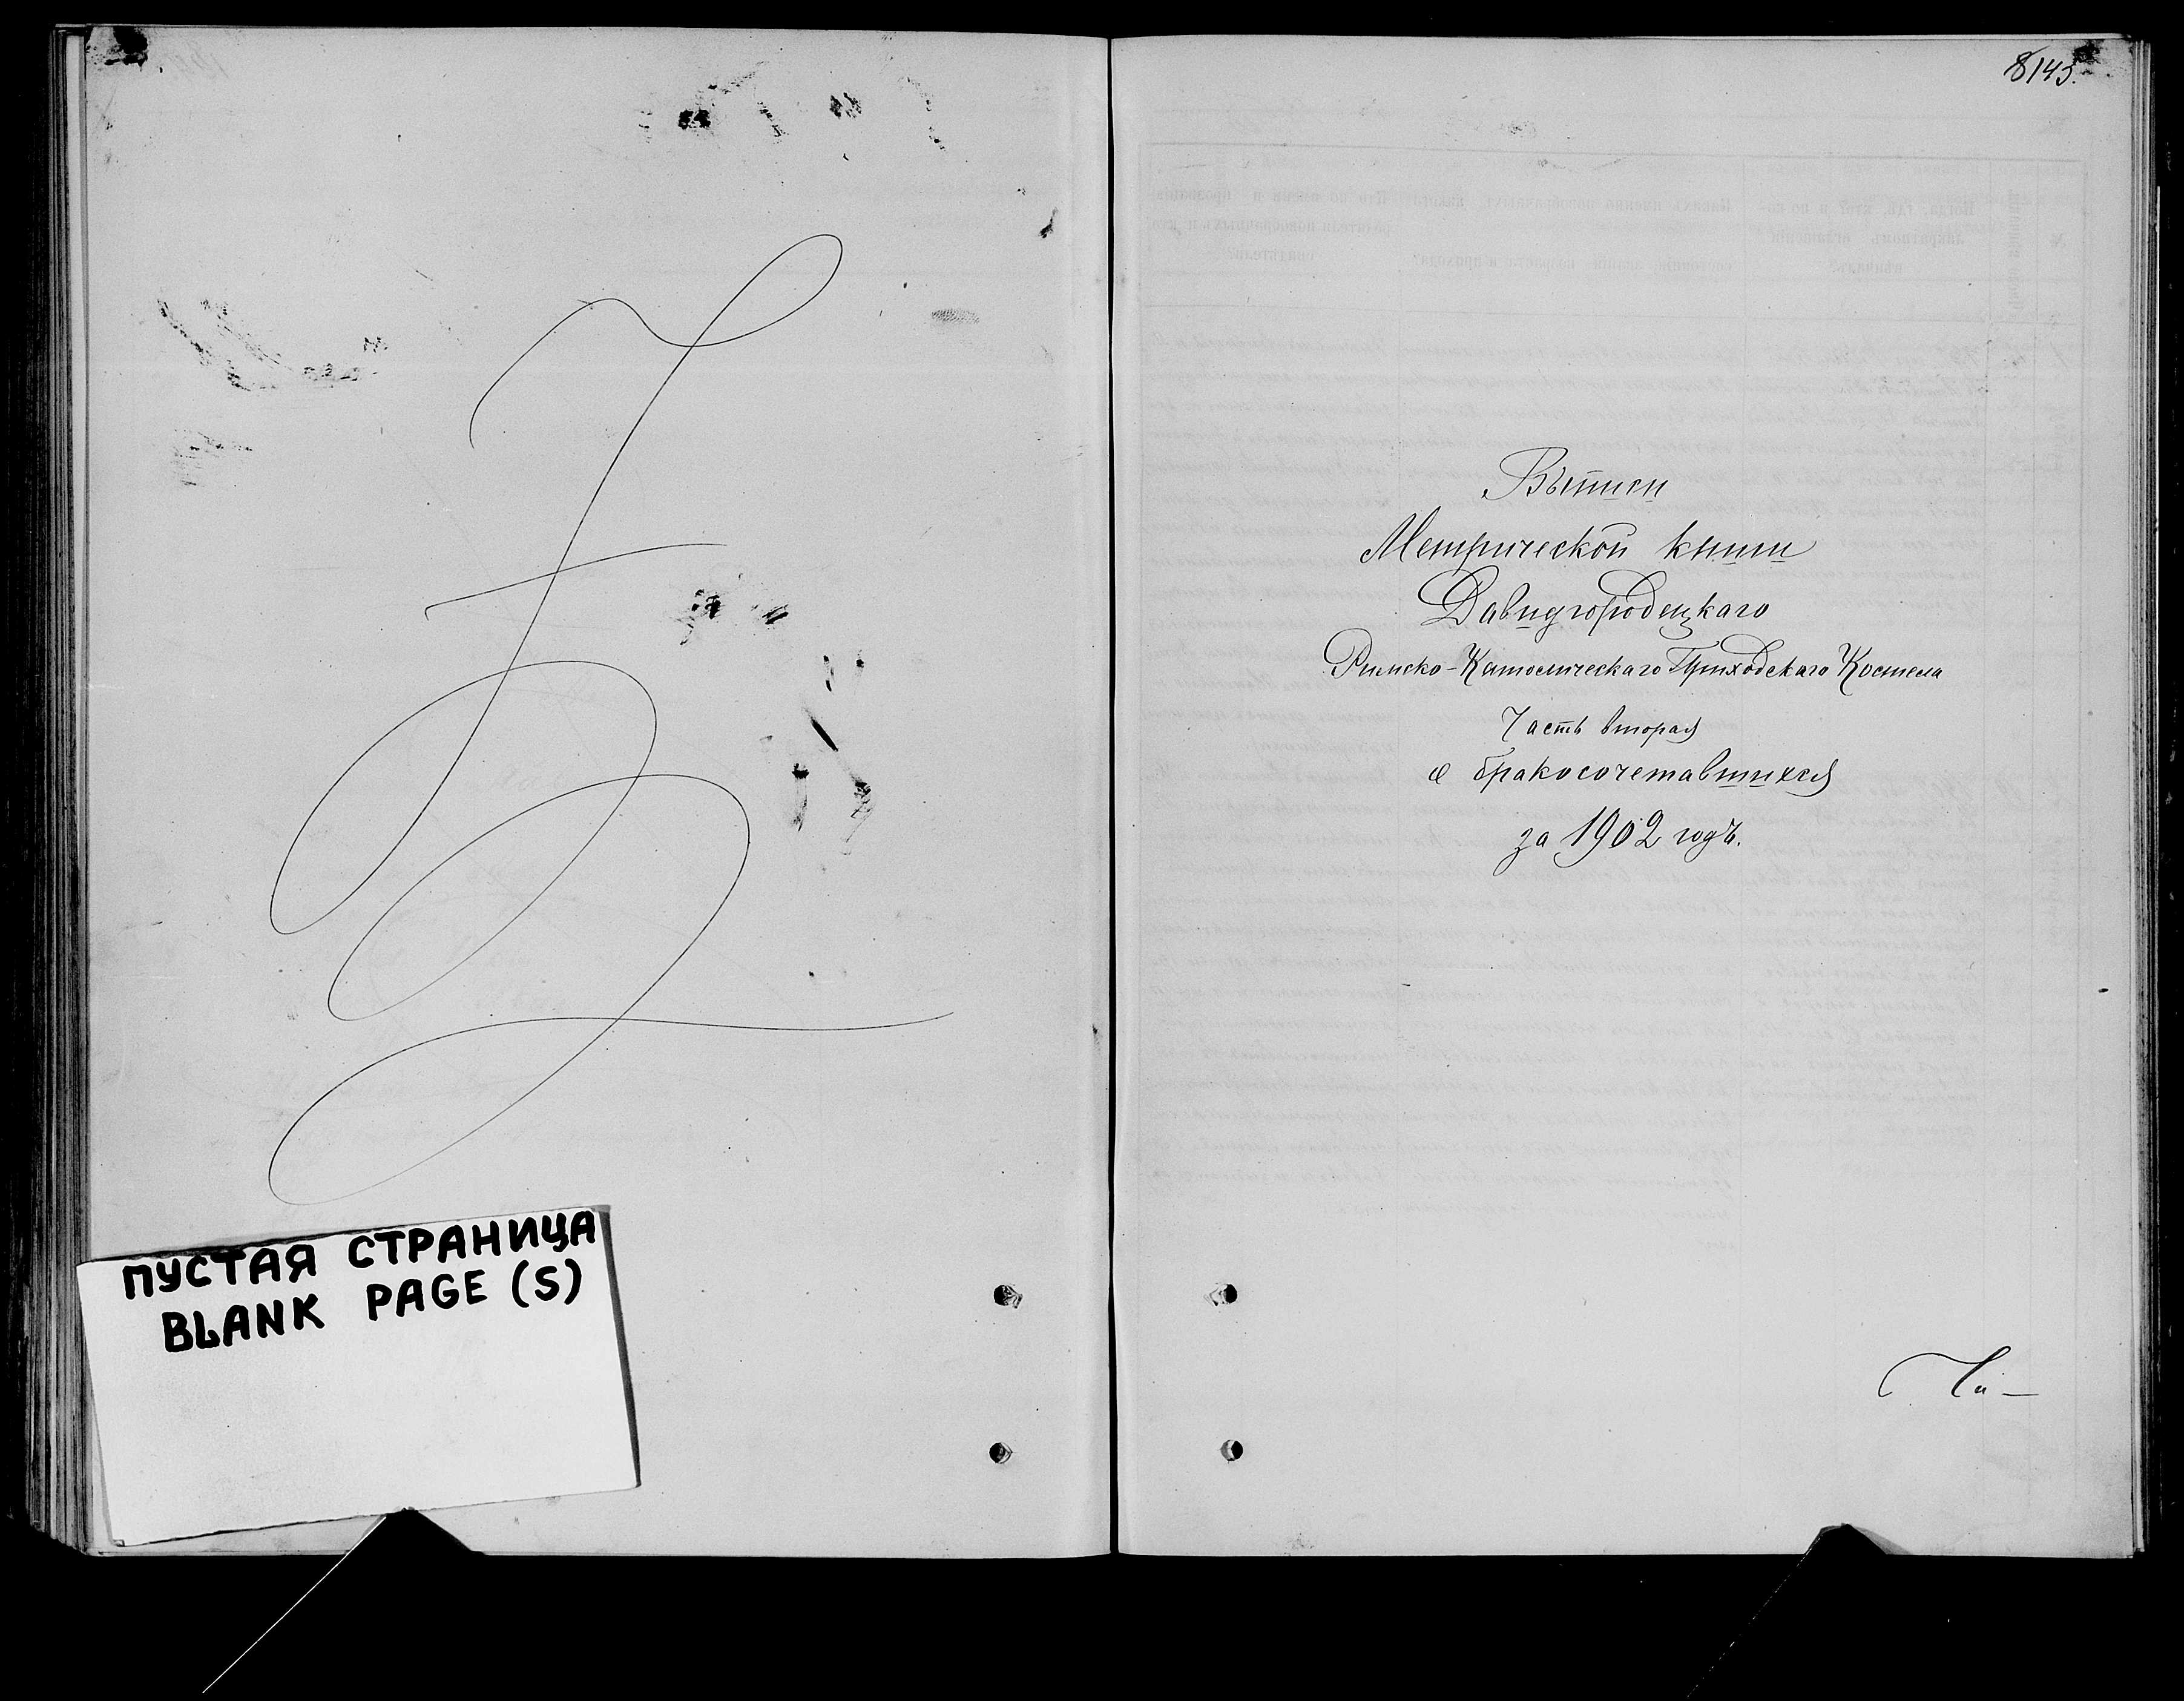 ПУСТАЯ СТРАНИЦА
BLANK PAGE (S)
8145.
Выписи
Метрической книги
Давидгородецкаго
Римско-Католическаго Приходскаго Костела
Часть вторая
о бракосочетавшихся
за 1902 годъ.